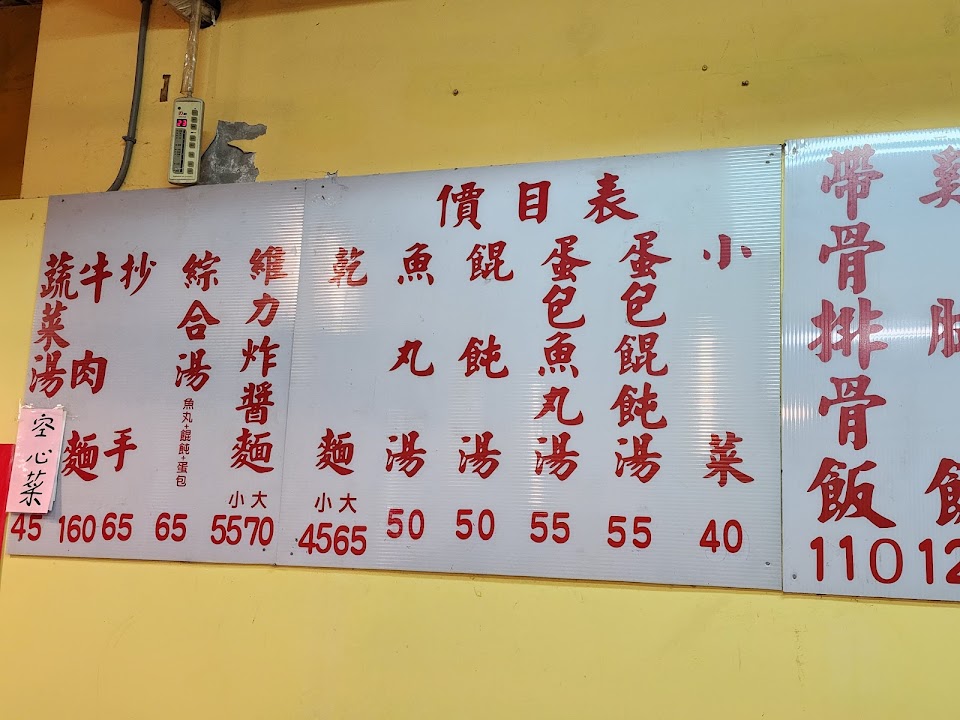 價目表
帶骨排骨飯
110
小菜
40
蛋包餛飩湯
55
蛋包魚丸湯
55
餛飩湯
50
魚丸湯
50
乾麵
小大
4565
維力炸醬麵
小大
5570
綜合湯
魚丸+餛飩+蛋包
65
抄手
65
牛肉麵
160
蔬菜湯
空心菜
45